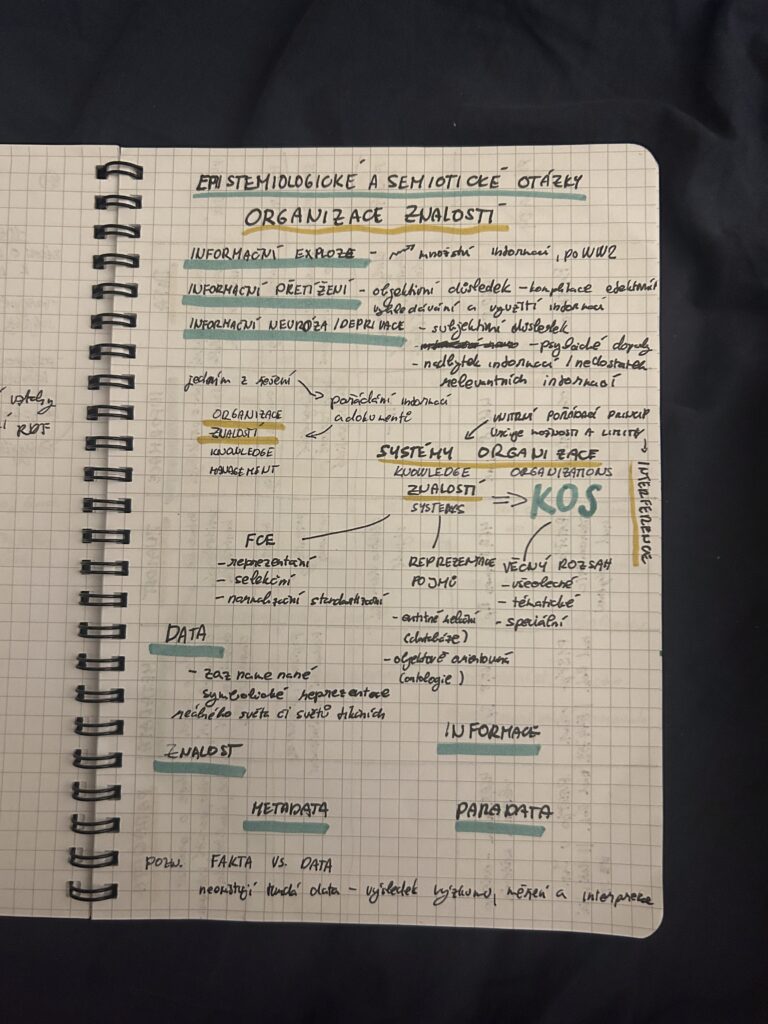 EPISTEMIOLOGICKÉ A SEMIOTICKÉ OTÁZKY
ORGANIZACE ZNALOSTÍ
INFORMAČNÍ EXPLOZE - množství informací, po WW2
INFORMAČNÍ PŘETÍŽENÍ - objektivní důsledek - komplikace efektivní
vyhledávání a využití informací
INFORMAČNÍ NEURÓZA/DEPRIVACE - subjektivní důsledek
- psychické dopady
- nadbytek informací / nedostatek
relevantních informací
jedním z řešení
pořádání informací
a dokumentů
ORGANIZACE
ZNALOSTÍ
KNOWLEDGE
MANAGEMENT
VNITŘNÍ POŘÁDACÍ PRINCIP
URČUJE MOŽNOSTI A LIMITY
INTERFERENCE
SYSTÉMY ORGANIZACE
KNOWLEDGE ORGANIZATIONS
ZNALOSTÍ => KOS
SYSTEMS
FCE
- reprezentační
- selekční
- normalizační standardizační
REPREZENTACE
POJMŮ
- entitně relační
(databáze)
- objektově orientovaná
(ontologie)
VĚCNÝ ROZSAH
- všeobecné
- tématické
- speciální
DATA
- zaznamenané
symbolické reprezentace
reálného světa či světů
INFORMACE
ZNALOST
METADATA
PARADATA
pozn. FAKTA VS. DATA
neexistují data - výsledek výzkumu, měření a interpretace
RDF